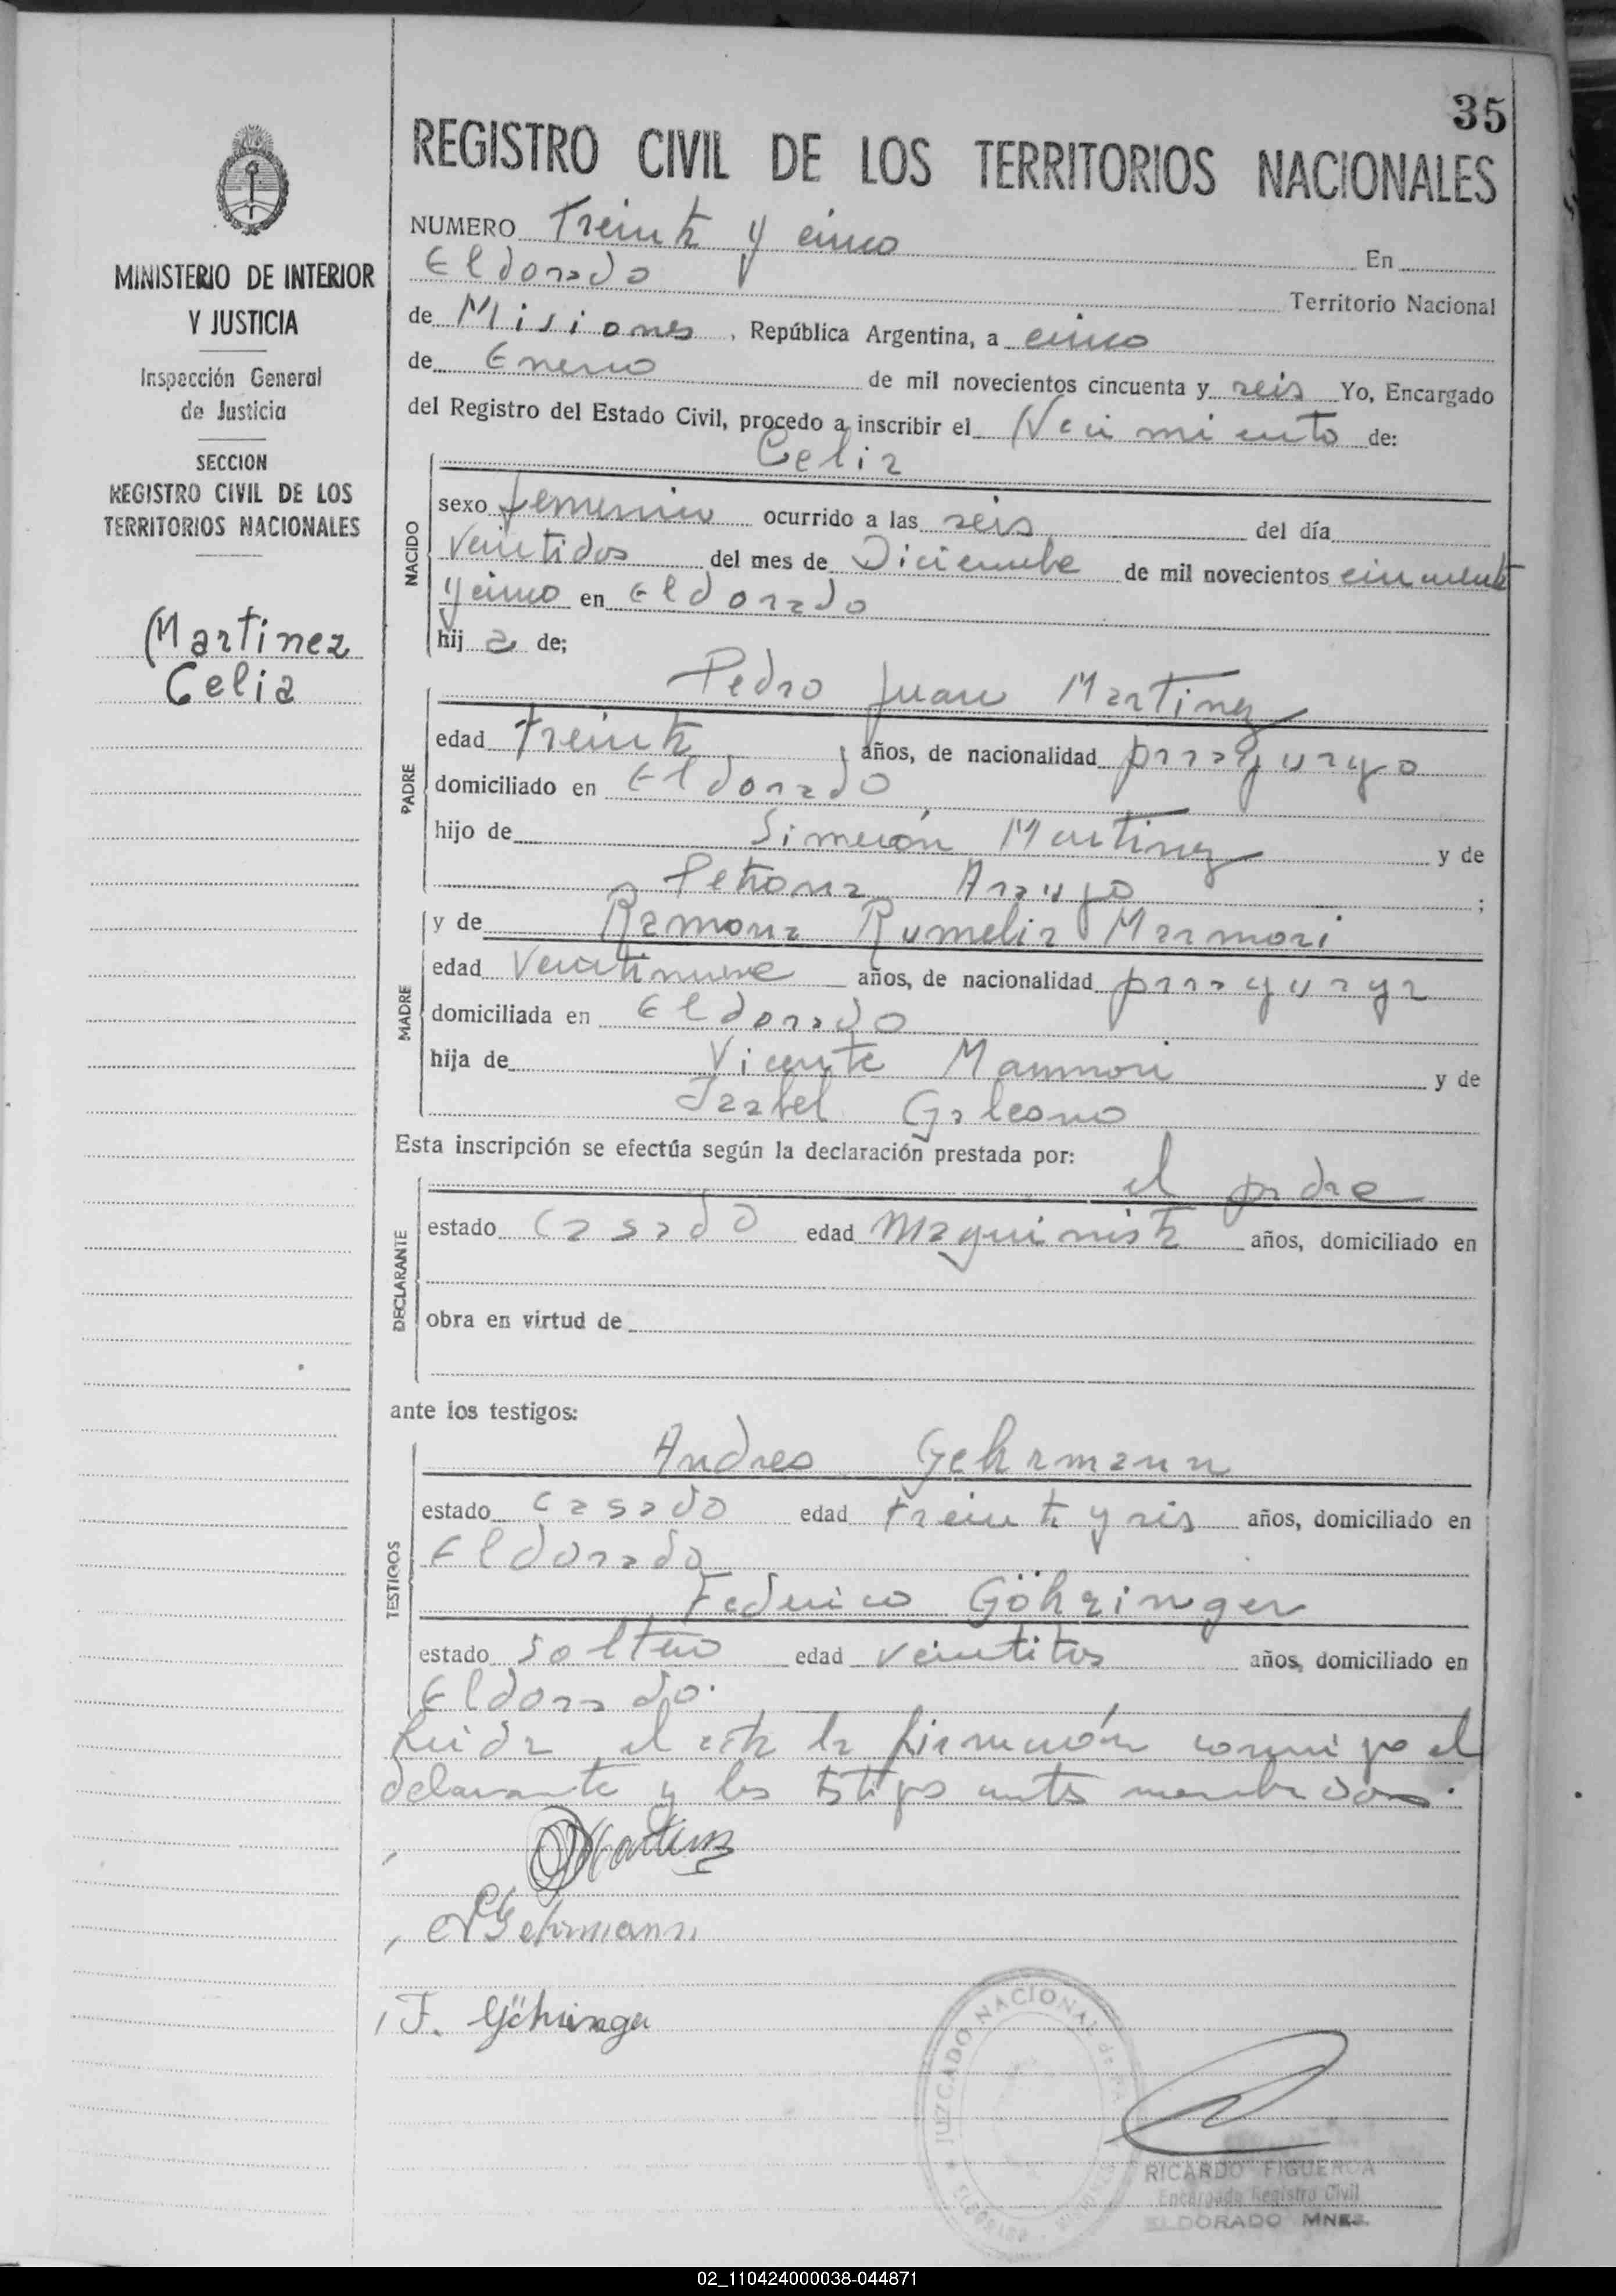 35
REGISTRO CIVIL DE LOS TERRITORIOS NACIONALES
MINISTERIO DE INTERIOR
Y JUSTICIA
Inspección General
de Justicia
SECCION
REGISTRO CIVIL DE LOS
TERRITORIOS NACIONALES
Martinez
Celia
NUMERO Treinta y cinco En
Eldorado Territorio Nacional
de Misiones, República Argentina, a cinco
de Enero de mil novecientos cincuenta y seis Yo, Encargado
del Registro del Estado Civil, procedo a inscribir el Nacimiento de:
Celia
NACIDO
sexo femenino ocurrido a las seis del día
veintidos del mes de Diciembre de mil novecientos cincuenta
y cinco en Eldorado
hija de;
Pedro Juan Martinez
PADRE
edad treinta años, de nacionalidad paraguayo
domiciliado en Eldorado
hijo de Simeón Martinez y de
Petrona Araujo ;
y de Ramona Rumelia Marmori
MADRE
edad veintinueve años, de nacionalidad paraguaya
domiciliada en Eldorado
hija de Vicente Mammori y de
Isabel Galeano
Esta inscripción se efectúa según la declaración prestada por:
el padre
DECLARANTE
estado casado edad maquinista años, domiciliado en
obra en virtud de
ante los testigos:
Andres Gehrmann
TESTIGOS
estado casado edad treinta y seis años, domiciliado en
Eldorado
Federico Göhringer
estado soltero edad veintitres años, domiciliado en
Eldorado.
Leida el acta la firmarón conmigo el
declarante y los testigos antes nombrados.
Martinez
Gehrmann
F. Göhringer
JUZGADO NACIONAL de PAZ
ELDORADO - MISIONES
RICARDO FIGUEROA
Encargado Registro Civil
ELDORADO MNES.
02_110424000038-044871